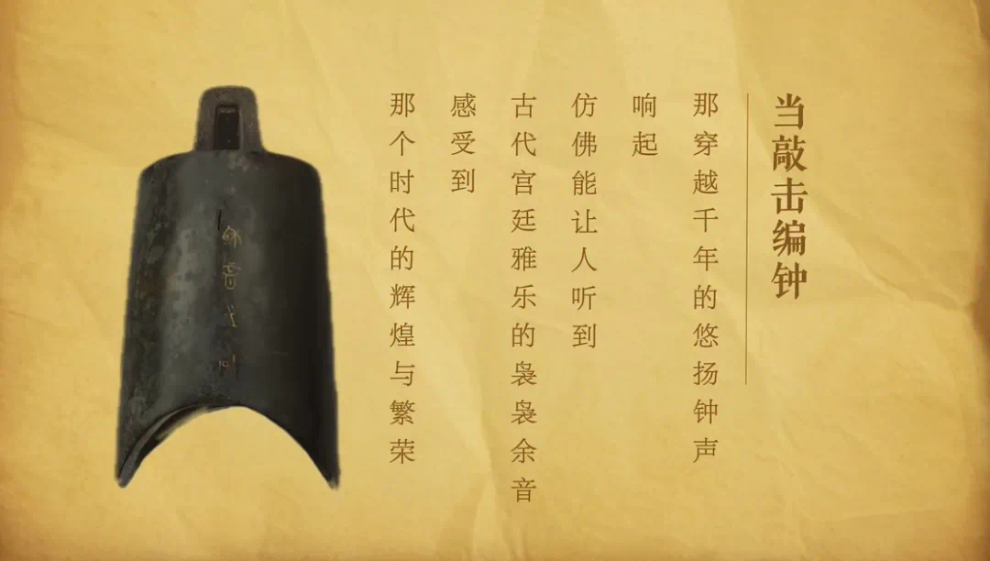 当敲击编钟
那穿越千年的悠扬钟声
响起
仿佛能让人听到
古代宫廷雅乐的袅袅余音
感受到
那个时代的辉煌与繁荣